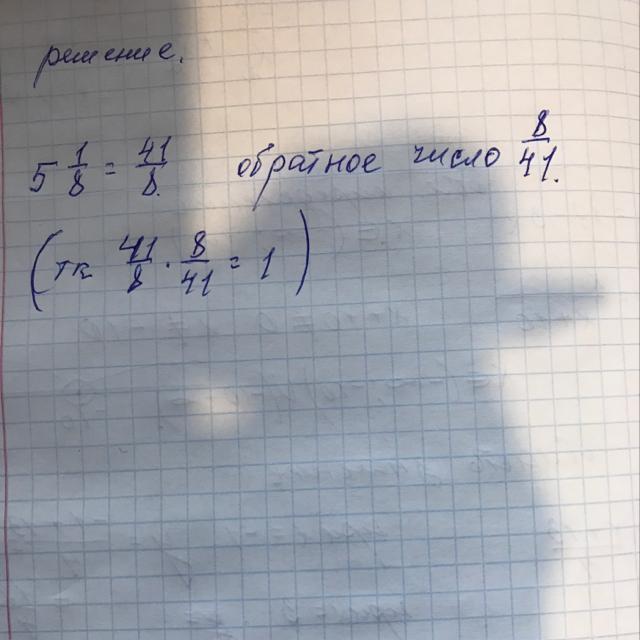 решение.
5 1/8 = 41/8. обратное число 8/41.
(тк 41/8 · 8/41 = 1)